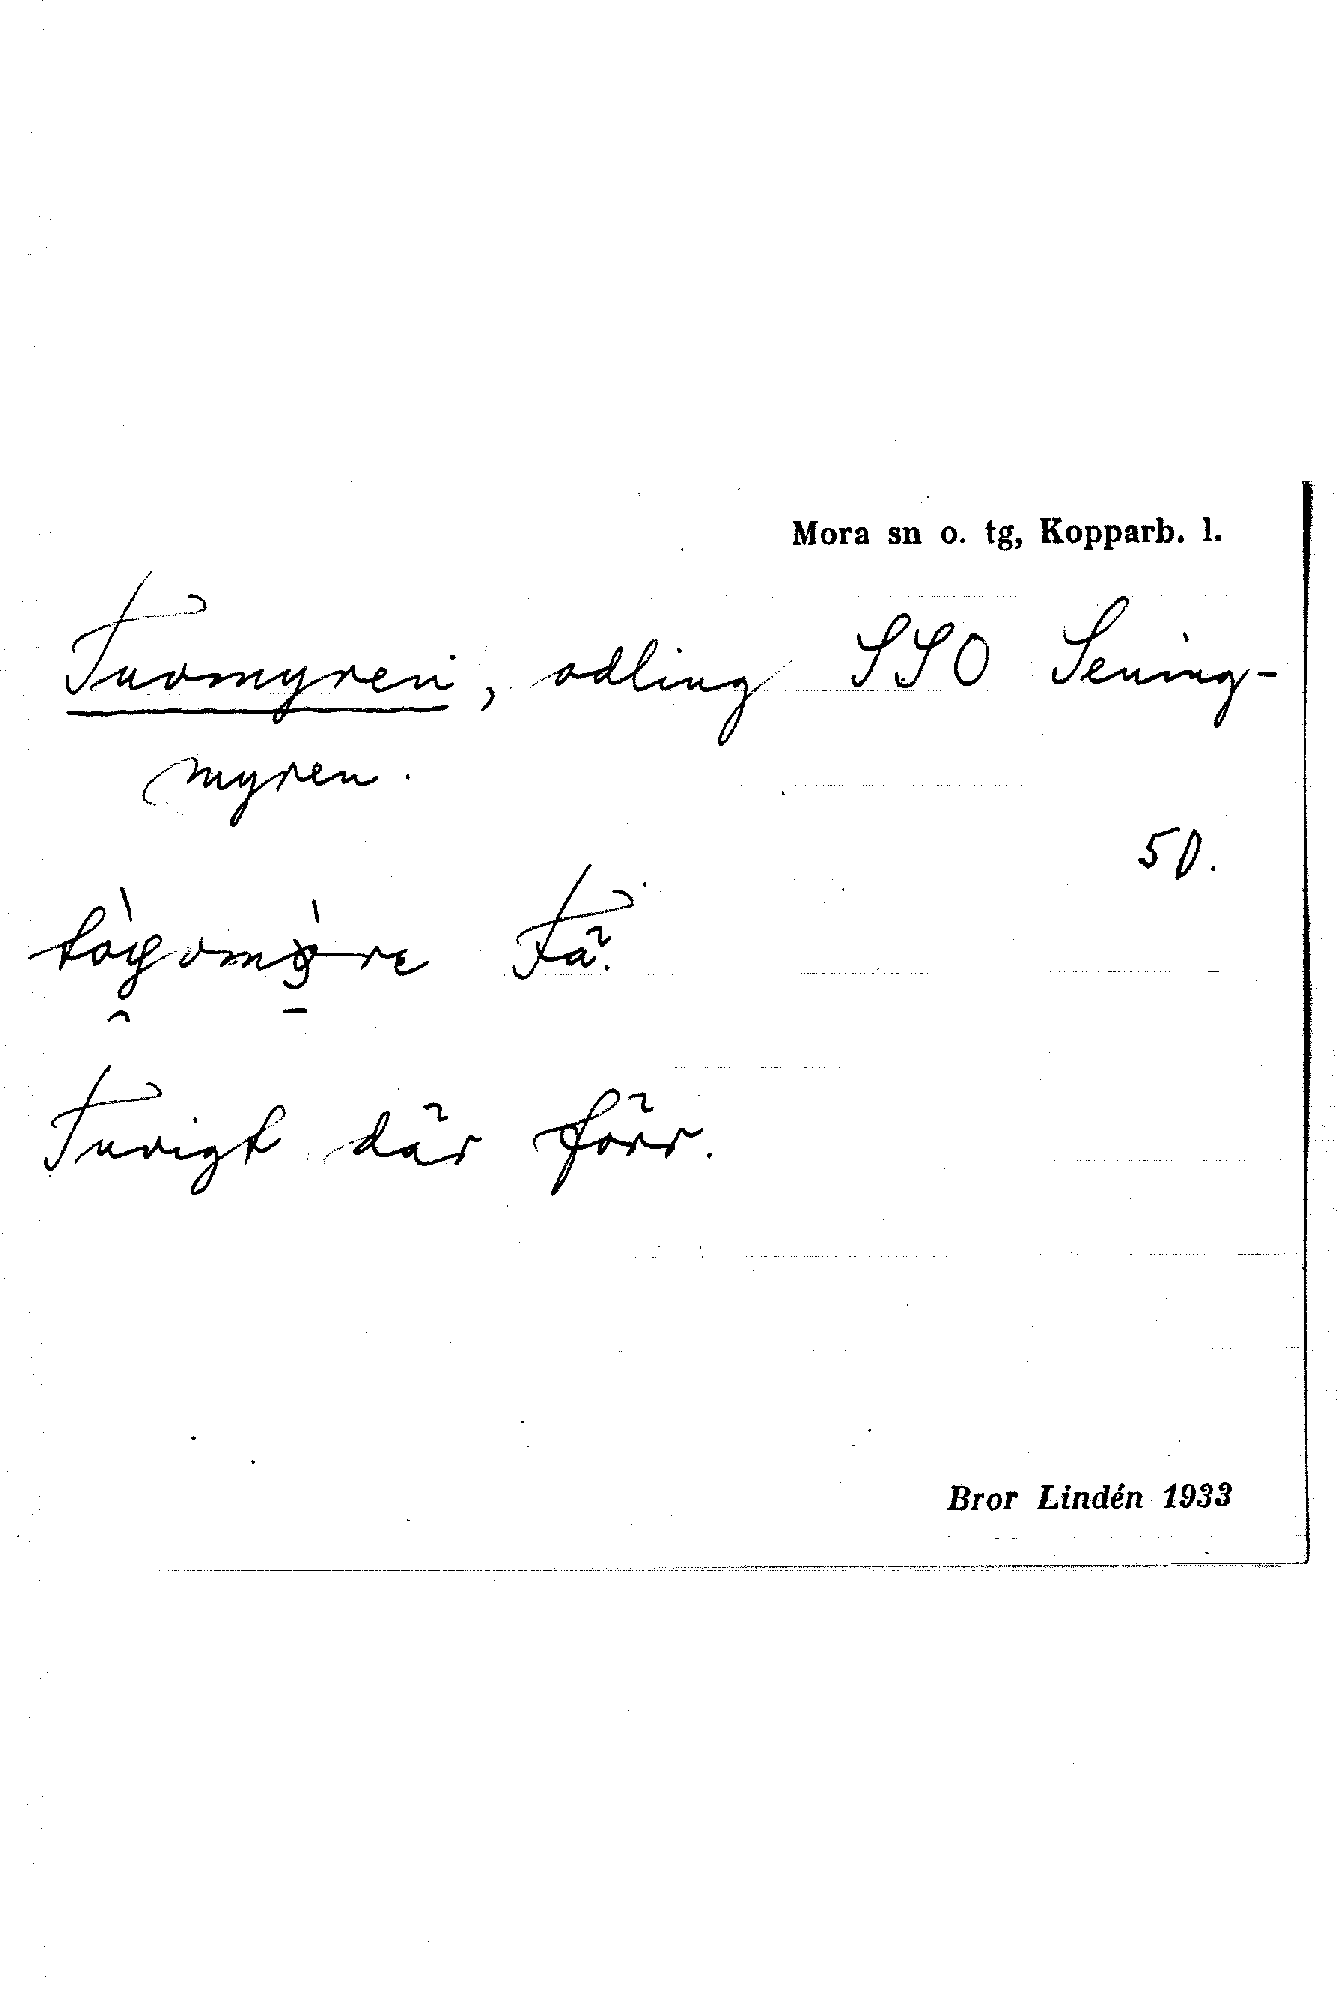 Mora sn o. tg, Kopparb. l.
Tuvmyren, odling SSO Sening-
myren.
50.
Fä.
Tuvigt där förr.
Bror Lindén 1933